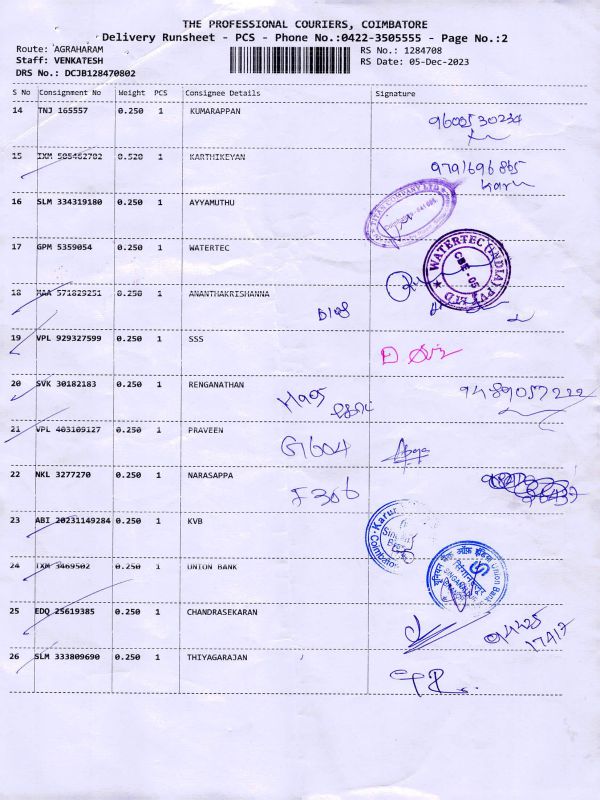 THE PROFESSIONAL COURIERS, COIMBATORE
Delivery Runsheet - PCS - Phone No.:0422-3505555 - Page No.:2
Route: AGRAHARAM RS No.: 1284708
Staff: VENKATESH RS Date: 05-Dec-2023
DRS No.: DCJB128470802
S No Consignment No Weight PCS Consignee Details Signature
14 TNJ 165557 0.250 1 KUMARAPPAN
9600530234
15 IXM 505402702 0.520 1 KARTHIKEYAN
9791696865
Karu
16 SLM 334319180 0.250 1 AYYAMUTHU
TITAN COMPANY LTD
17 GPM 5359054 0.250 1 WATERTEC
WATERTEC (INDIA) PVT LTD
CBE - 05
18 MAA 571829251 0.250 1 ANANTHAKRISHANNA
19 VPL 929327599 0.250 1 SSS
20 SVK 30182183 0.250 1 RENGANATHAN
H905
9489057222
21 VPL 403109127 0.250 1 PRAVEEN
G1604
22 NKL 3277270 0.250 1 NARASAPPA
F306
23 ABI 20231149284 0.250 1 KVB
24 IXM 3469502 0.250 1 UNION BANK
यूनियन बैंक ऑफ़ इंडिया Union Bank
25 EDQ 25619385 0.250 1 CHANDRASEKARAN
94425
17417
26 SLM 333809690 0.250 1 THIYAGARAJAN